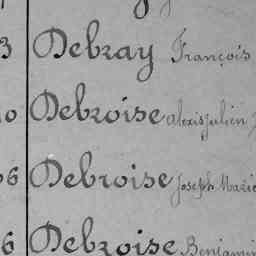 3 Debray François
0 Debroise alexis julien
6 Debroise Joseph Marie
6 Debroise Benjamin